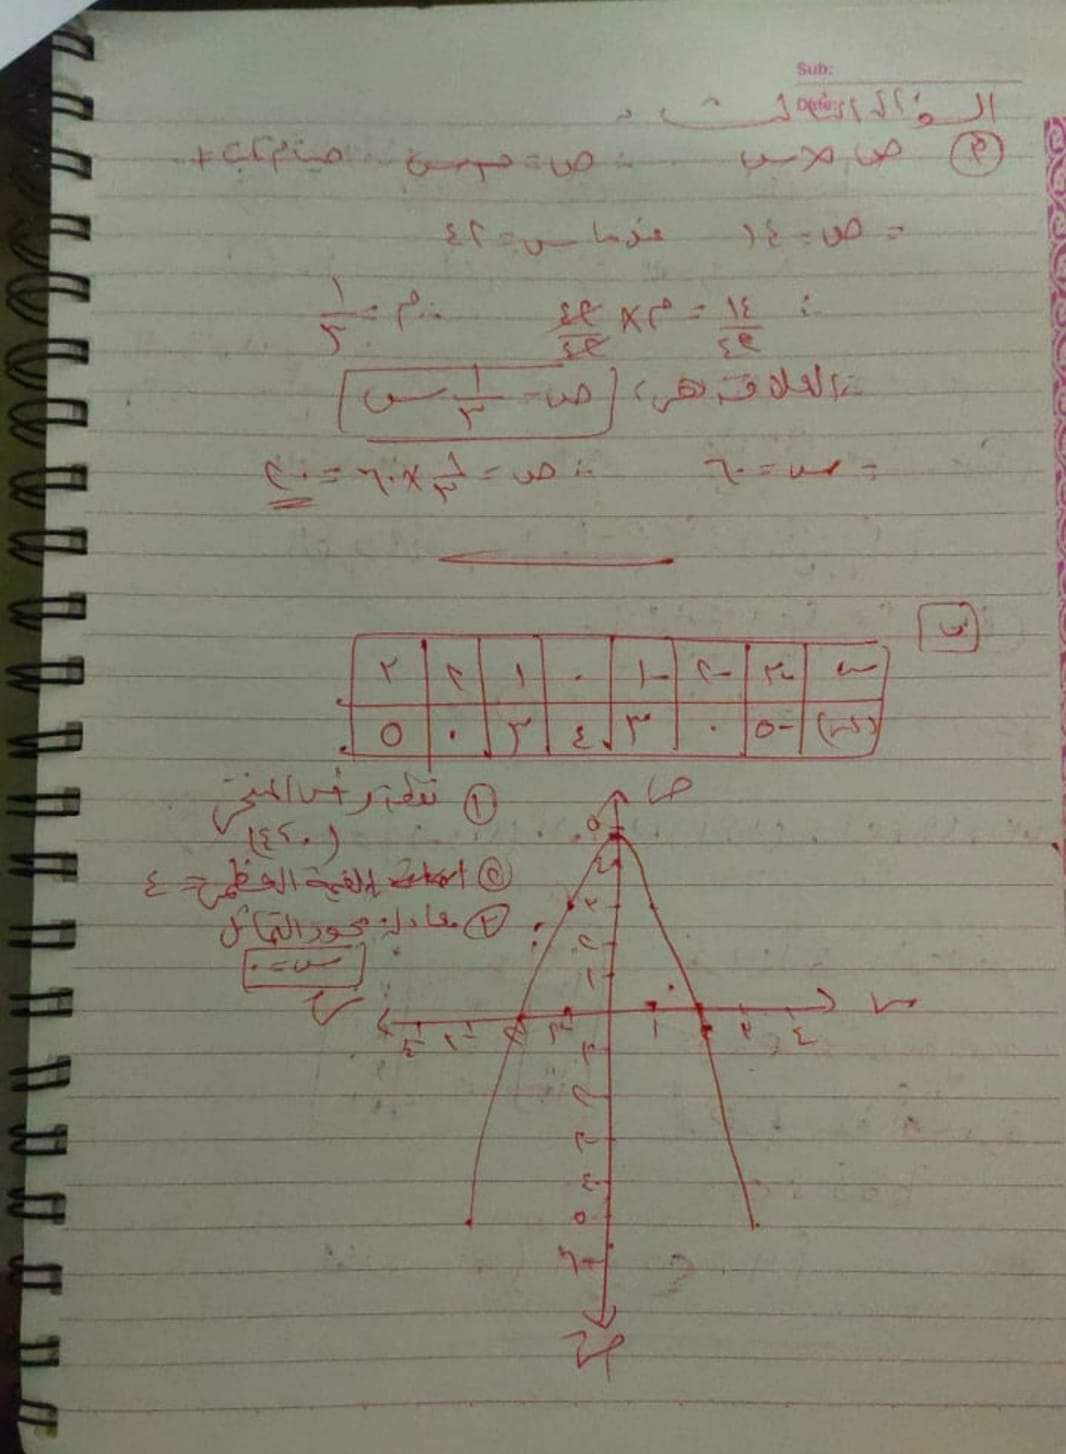 Sub:
Date:
السؤال الثالث :
(٢) ص ∝ س ∴ ص = م س حيث م ثابت ≠
= ص = ١٤ عندما س = ٤٢
∴ ١٤/٤٢ = م × ٤٢/٤٢ ∴ م = ١/٣
∴ العلاقة هى: ص = ١/٣ س
= س = ٦٠ ∴ ص = ١/٣ × ٦٠ = ٢٠
ب
س | -٣ | -٢ | -١ | ٠ | ١ | ٢ | ٣
د(س) | -٥ | ٠ | ٣ | ٤ | ٣ | ٠ | ٥
ص
① نقطة رأس المنحنى
(٤،٠)
② القيمة العظمى = ٤
③ معادلة محور التماثل
س = ٠
٥
٤
٣
٢
١
س
٤ ٣ ٢ ١
١ ٢ ٣ ٤
سَ
١
٢
٣
٤
٥
٦
صَ